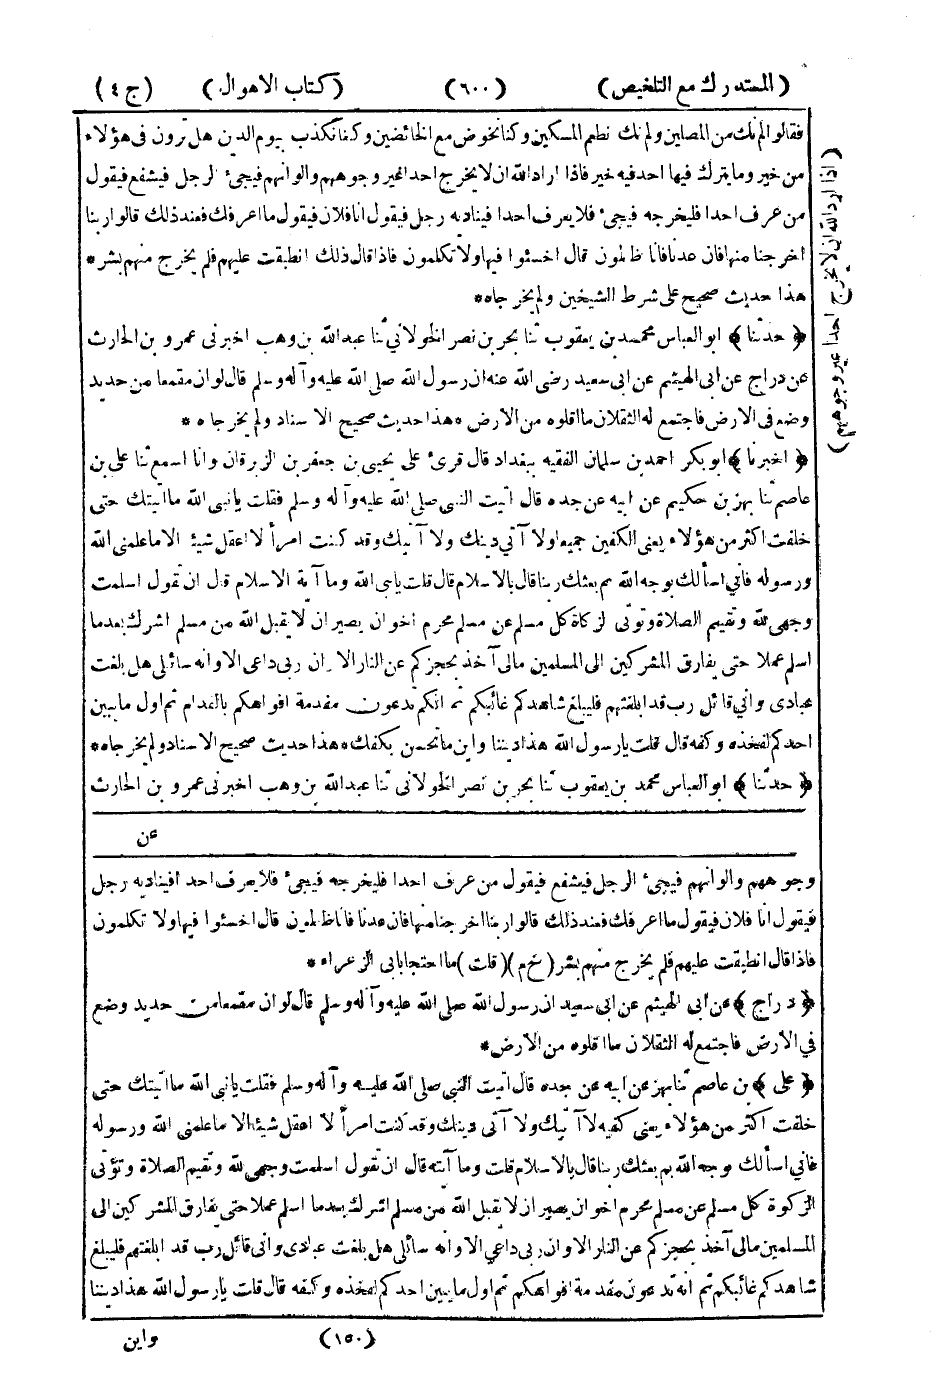 (المستدرك مع التلخيص) (٦٠٠) (كتاب الاهوال) (ج٤)
فقالوا لم نك من المصلين ولم نك نطعم المسكين وكنا نخوض مع الخائضين وكنا نكذب بيوم الدين هل ترون فى هؤلاء
من خير وما يترك فيها احد فيه خير فاذا اراد الله ان لا يخرج احدا غير وجوههم والوانهم فيجئ الرجل فيشفع فيقول
من عرف احدا فليخرجه فيجئ فلا يعرف احدا فيناديه رجل فيقول انا فلان فيقول ما اعرفك فعند ذلك قالوا ربنا
اخرجنا منها فان عدنا فانا ظالمون قال اخسئوا فيها ولا تكلمون فاذا قال ذلك انطبقت عليهم فلم يخرج منهم بشر *
هذا حديث صحيح على شرط الشيخين ولم يخرجاه *
﴿حدثنا﴾ ابو العباس محمد بن يعقوب ثنا بحر بن نصر الخولاني ثنا عبد الله بن وهب اخبرنى عمرو بن الحارث
عن دراج عن ابى الهيثم عن ابى سعيد رضى الله عنه ان رسول الله صلى الله عليه وآله وسلم قال لو ان مقمعا من حديد
وضع فى الارض فاجتمع له الثقلان ما اقلوه من الارض * هذا حديث صحيح الاسناد ولم يخرجاه *
﴿اخبرنا﴾ ابو بكر احمد بن سلمان الفقيه ببغداد قال قرئ على يحيى بن جعفر بن الزبرقان وانا اسمع ثنا على بن
عاصم ثنا بهز بن حكيم عن ابيه عن جده قال اتيت النبى صلى الله عليه وآله وسلم فقلت يا نبى الله ما اتيتك حتى
خلفت اكثر من هؤلاء يعنى الكفين جميعا ولا آتى دينك ولا آتيك وقد كنت امرأ لا اعقل شيئا الا ما علمنى الله
ورسوله فانى اسألك بوجه الله بم بعثك ربنا قال بالاسلام قال قلت يا نبى الله وما آية الاسلام قال ان تقول اسلمت
وجهى لله وتقيم الصلاة وتؤتى الزكاة كل مسلم عن مسلم محرم اخوان نصيران لا يقبل الله من مسلم اشرك بعدما
اسلم عملا حتى يفارق المشركين الى المسلمين مالى آخذ بحجزكم عن النار الا وان ربى داعى الا وانه سائلى هل بلغت
عبادى وانى قائل رب قد ابلغتهم فليبلغ شاهدكم غائبكم ثم انكم تدعون مقدمة افواهكم بالفدام ثم اول ما يبين
احدكم لفخذه وكفه قال قلت يا رسول الله هذا ديننا واين ما تحسن يكفك * هذا حديث صحيح الاسناد ولم يخرجاه *
﴿حدثنا﴾ ابو العباس محمد بن يعقوب ثنا بحر بن نصر الخولانى ثنا عبد الله بن وهب اخبرنى عمرو بن الحارث
عن
وجوههم والوانهم فيجئ الرجل فيشفع فيقول من عرف احدا فليخرجه فيجئ فلا يعرف احدا فيناديه رجل
فيقول انا فلان فيقول ما اعرفك فعند ذلك قالوا ربنا اخرجنا منها فان عدنا فانا ظالمون قال اخسئوا فيها ولا تكلمون
فاذا قال انطبقت عليهم فلم يخرج منهم بشر (خ م) (قلت) ما احتجا بابى الزعراء *
﴿دراج﴾ عن ابى الهيثم عن ابى سعيد ان رسول الله صلى الله عليه وآله وسلم قال لو ان مقمعا من حديد وضع
فى الارض فاجتمع له الثقلان ما اقلوه من الارض *
﴿على﴾ بن عاصم ثنا بهز عن ابيه عن جده قال اتيت النبى صلى الله عليه وآله وسلم فقلت يا نبى الله ما اتيتك حتى
خلفت اكثر من هؤلاء يعنى كفيه لا آتيك ولا آتى دينك وقد كنت امرأ لا اعقل شيئا الا ما علمنى الله ورسوله
فانى اسألك بوجه الله بم بعثك ربنا قال بالاسلام قلت وما آيته قال ان تقول اسلمت وجهى لله وتقيم الصلاة وتؤتى
الزكوة كل مسلم عن مسلم محرم اخوان نصيران لا يقبل الله من مسلم اشرك بعدما اسلم عملا حتى يفارق المشركين الى
المسلمين مالى آخذ بحجزكم عن النار الا وان ربى داعى الا وانه سائلى هل بلغت عبادى وانى قائل رب قد ابلغتهم فليبلغ
شاهدكم غائبكم ثم انه تدعون مقدمة افواهكم ثم اول ما يبين احدكم لفخذه وكفه قال قلت يا رسول الله هذا ديننا
(١٥٠) واين
(اذا اراد الله ان لا يخرج احدا غير وجوههم)